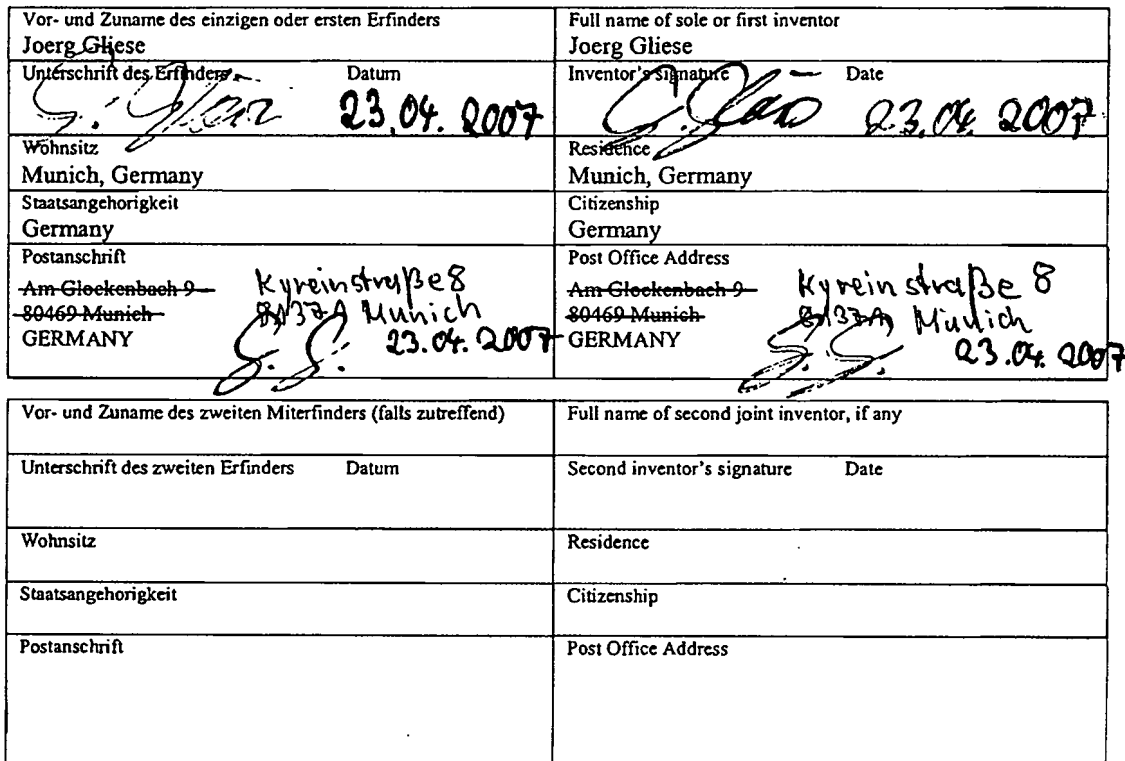 Vor- und Zuname des einzigen oder ersten Erfinders
Joerg Gliese
Full name of sole or first inventor
Joerg Gliese
Unterschrift des Erfinders Datum
23.04.2007
Inventor's signature Date
23.04.2007
Wohnsitz
Munich, Germany
Residence
Munich, Germany
Staatsangehorigkeit
Germany
Citizenship
Germany
Postanschrift
Am Glockenbach 9 Kyreinstraße 8
80469 Munich 81371 Munich
GERMANY 23.04.2007
Post Office Address
Am Glockenbach 9 Kyreinstraße 8
80469 Munich 81371 Munich
GERMANY 23.04.2007
Vor- und Zuname des zweiten Miterfinders (falls zutreffend)
Full name of second joint inventor, if any
Unterschrift des zweiten Erfinders Datum
Second inventor's signature Date
Wohnsitz
Residence
Staatsangehorigkeit
Citizenship
Postanschrift
Post Office Address